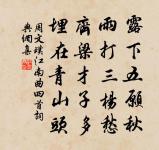 露下五愿秋
雨打三楊愁
齊梁才子多
埋在青山頭
周文璞江南曲四首詞
典網集